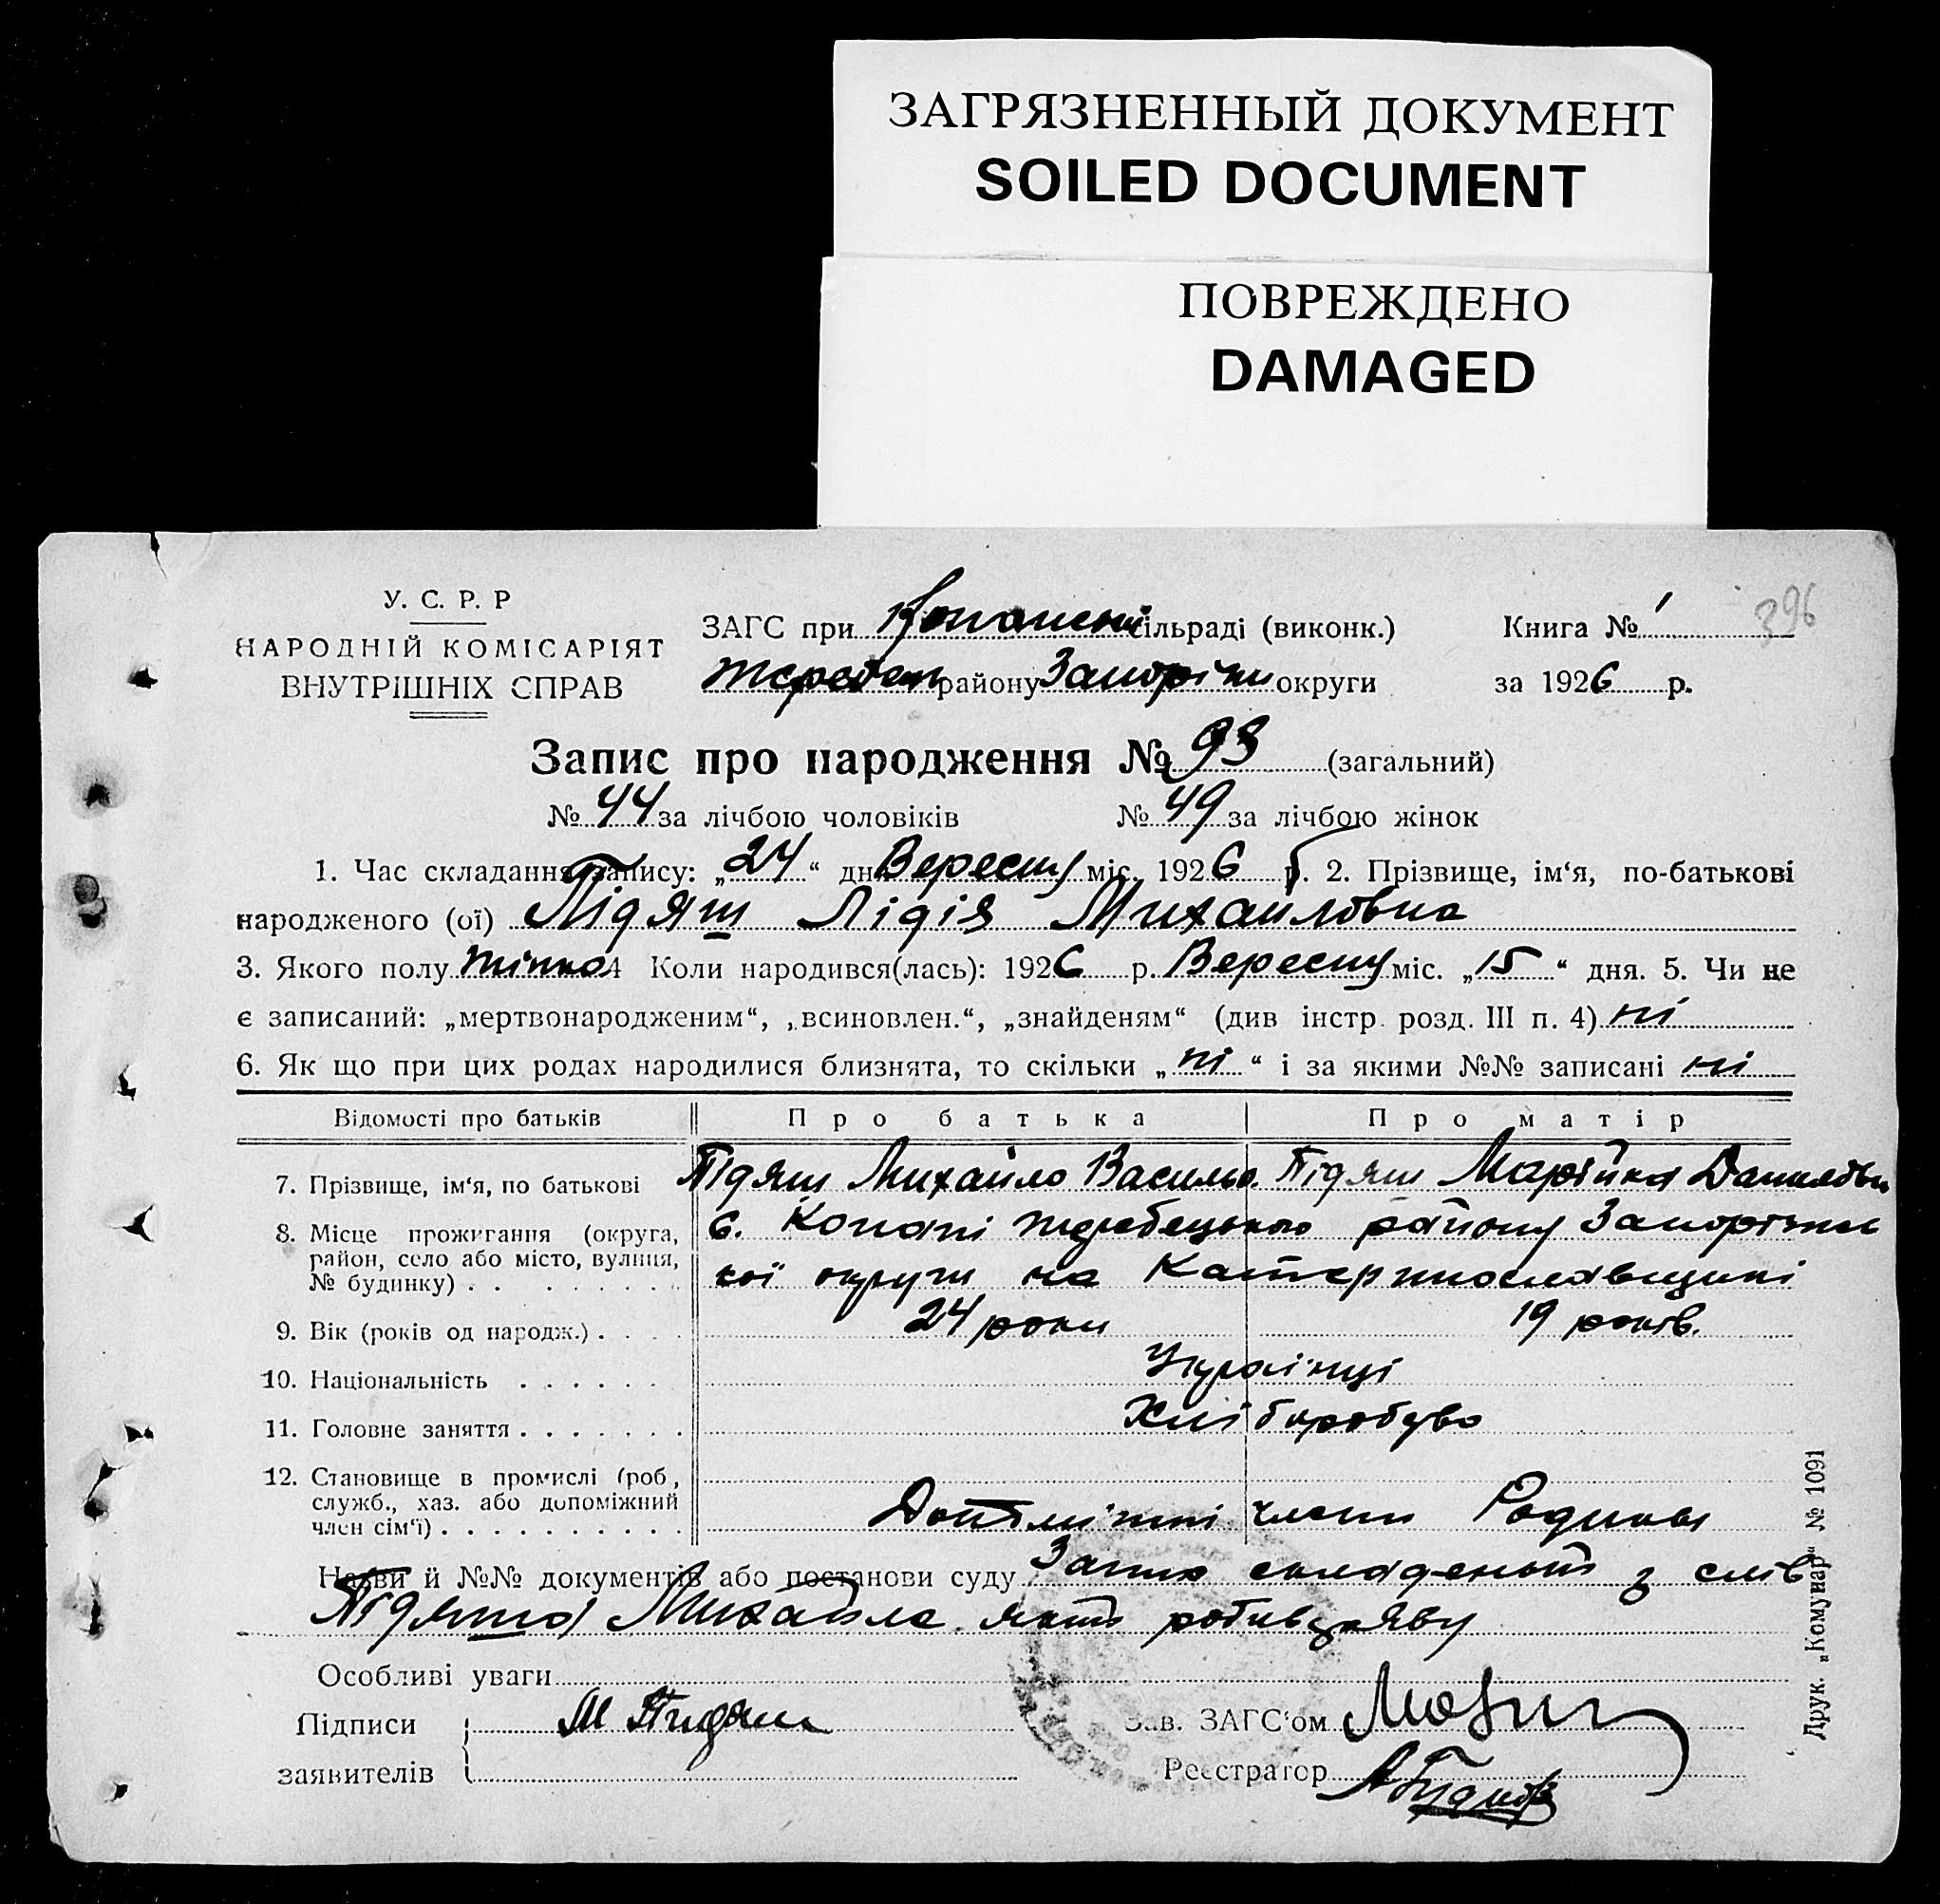 ЗАГРЯЗНЕННЫЙ ДОКУМЕНТ
SOILED DOCUMENT
ПОВРЕЖДЕНО
DAMAGED
У. С. Р. Р
НАРОДНІЙ КОМІСАРІЯТ
ВНУТРІШНІХ СПРАВ
ЗАГС при Копансь сільраді (виконк.)
Жеребец району Запоріжж округи
Книга № 1 396
за 1926 р.
Запис про народження № 93 (загальний)
№ 44 за лічбою чоловіків № 49 за лічбою жінок
1. Час складання запису: „24“ дня Вересню міс. 1926 р. 2. Прізвище, ім‘я, по-батькові
народженого (ої) Підяш Лідія Михайловна
3. Якого полу жіноч 4 Коли народився(лась): 1926 р. Вересню міс. „15“ дня. 5. Чи не
є записаний: „мертвонародженим“, „всиновлен.“, „знайденям“ (див інстр. розд. III п. 4) ні
6. Як що при цих родах народилися близнята, то скільки „ні“ і за якими №№ записані ні
Відомості про батьків Про батька Про матір
7. Прізвище, ім‘я, по батькові Підяш Михайло Васильо. Підяш Марійка Даниловн
8. Місце прожигання (округа, район, село або місто, вулиця, № будинку) С. Копані Жеребецького району Запоріжсь
кої округи на Катеринославщині
9. Вік (років од народж.) 24 роки 19 років.
10. Національність Українці
11. Головне заняття Хліборобство
12. Становище в промислі (роб, служб., хаз. або допоміжний член сім‘ї) Допоміжні члени Родини
Назви й №№ документів або постанови суду Запис складений з слів
Підяша Михайла який робив заяву
Особливі уваги
Підписи заявителів М Пидяш
Зав. ЗАГС‘ом
Реєстратор
Друк. „Комунар“ № 1091